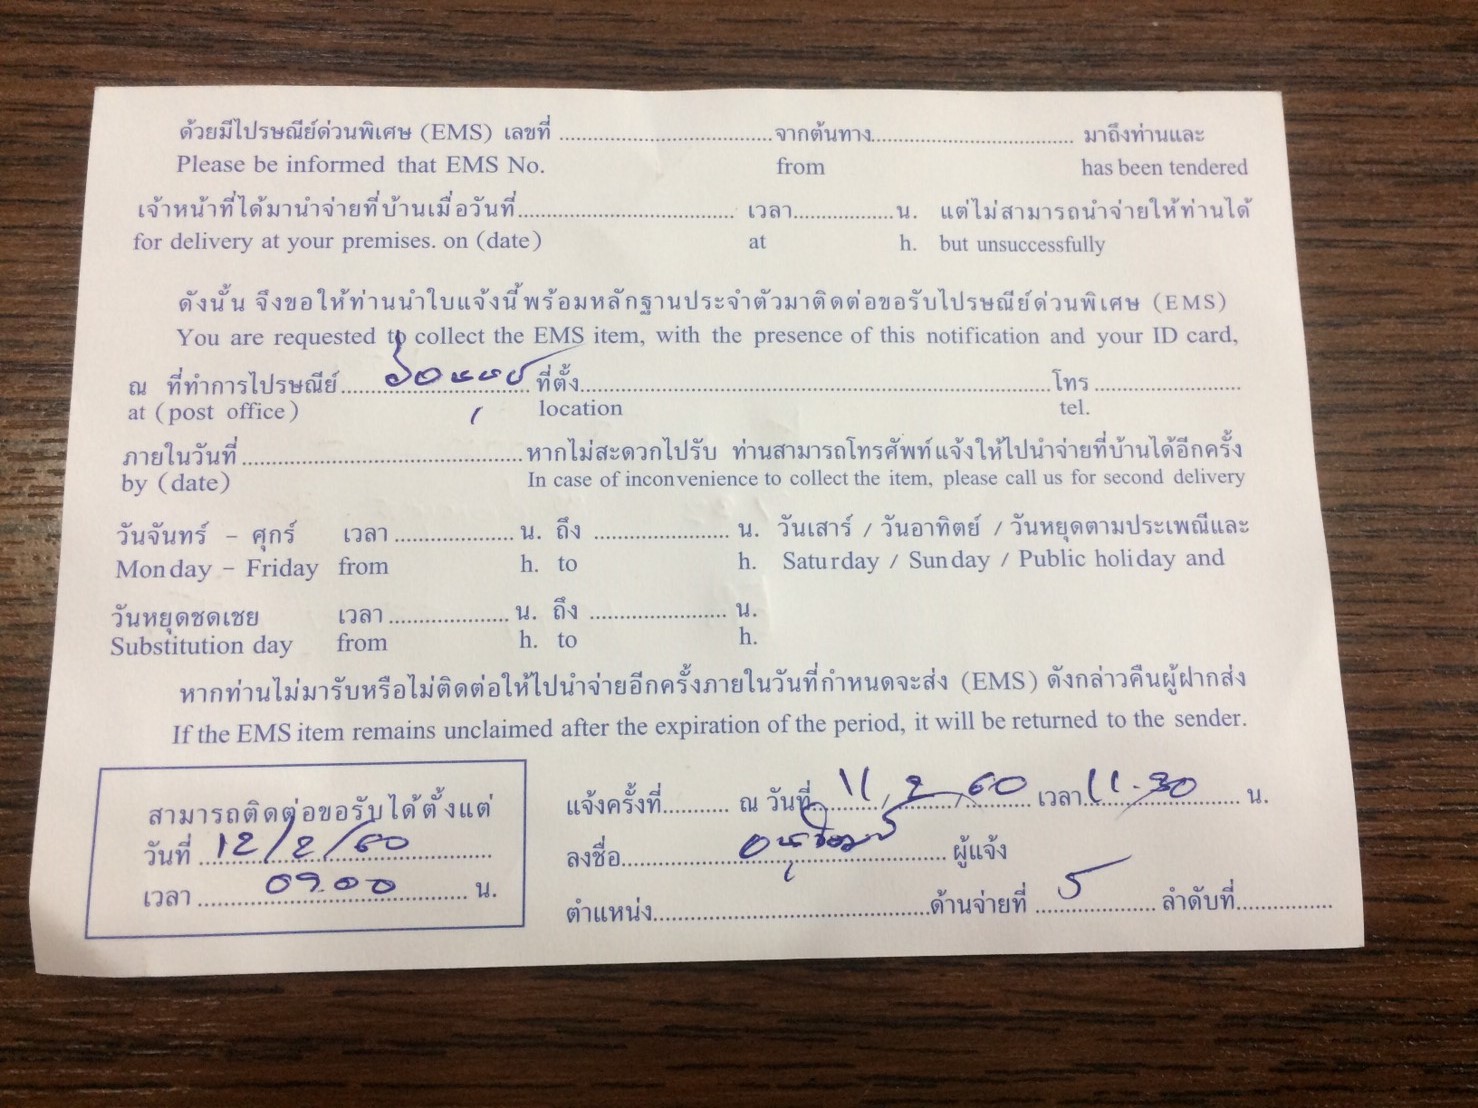 ด้วยมีไปรษณีย์ด่วนพิเศษ (EMS) เลขที่ ........................ จากต้นทาง........................ มาถึงท่านและ
Please be informed that EMS No. from has been tendered
เจ้าหน้าที่ได้มานำจ่ายที่บ้านเมื่อวันที่........................ เวลา............น. แต่ไม่สามารถนำจ่ายให้ท่านได้
for delivery at your premises. on (date) at h. but unsuccessfully
ดังนั้น จึงขอให้ท่านนำใบแจ้งนี้พร้อมหลักฐานประจำตัวมาติดต่อขอรับไปรษณีย์ด่วนพิเศษ (EMS)
You are requested to collect the EMS item, with the presence of this notification and your ID card,
ณ ที่ทำการไปรษณีย์........................ที่ตั้ง........................โทร ........................
at (post office) location tel.
ภายในวันที่ ........................หากไม่สะดวกไปรับ ท่านสามารถโทรศัพท์แจ้งให้ไปนำจ่ายที่บ้านได้อีกครั้ง
by (date) In case of inconvenience to collect the item, please call us for second delivery
วันจันทร์ - ศุกร์ เวลา ............... น. ถึง ............... น. วันเสาร์ / วันอาทิตย์ / วันหยุดตามประเพณีและ
Monday - Friday from h. to h. Saturday / Sunday / Public holiday and
วันหยุดชดเชย เวลา ............... น. ถึง ............... น.
Substitution day from h. to h.
หากท่านไม่มารับหรือไม่ติดต่อให้ไปนำจ่ายอีกครั้งภายในวันที่กำหนดจะส่ง (EMS) ดังกล่าวคืนผู้ฝากส่ง
If the EMS item remains unclaimed after the expiration of the period, it will be returned to the sender.
สามารถติดต่อขอรับได้ตั้งแต่
วันที่ 12/2/60
เวลา 09.00 น.
แจ้งครั้งที่.......... ณ วันที่ 11/2/60 เวลา 11.30 น.
ลงชื่อ........................ ผู้แจ้ง
ตำแหน่ง........................ด้านจ่ายที่ 5 ลำดับที่...............